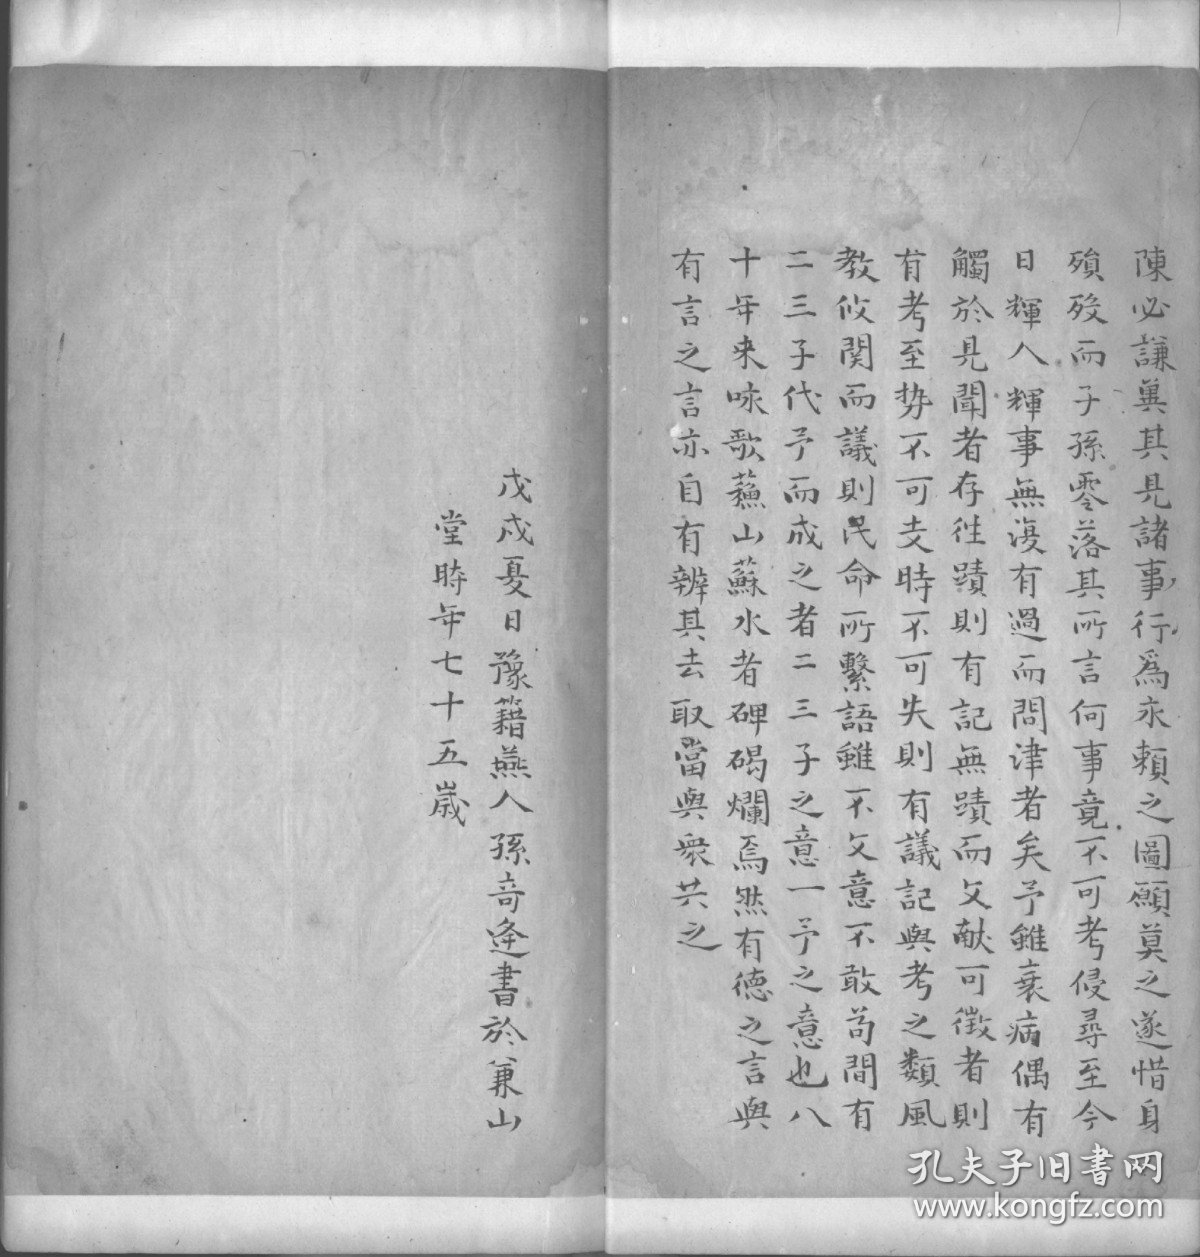 陳必謙冀其見諸事行爲永賴之圖願莫之遂惜身
殞歿而子孫零落其所言何事竟不可考侵尋至今
日輝人輝事無復有過而問津者矣予雖衰病偶有
觸於見聞者存往蹟則有記無蹟而文献可徵者則
有考至勢不可支時不可失則有議記與考之類風
教攸関而議則民命所繫語雖不文意不敢苟間有
二三子代予而成之者二三子之意一予之意也八
十年来咏歌蘓山蘇水者碑碣爛焉然有德之言與
有言之言亦自有辨其去取當與衆共之
戊戌夏日豫籍燕人孫奇逢書於兼山
堂時年七十五歲
孔夫子旧书网
www.kongfz.com